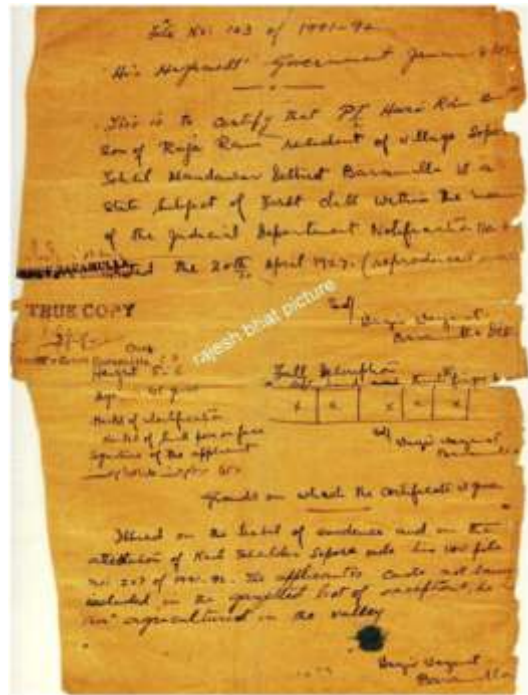 File No: 143 of 1991-92
His Highness' Government Jammu &
This is to certify that Pt Hari Ram
son of Raja Ram resident of village Sopore
Tehsil Handawar District Baramulla is a
State Subject of First class within the
of the Judicial Department Notification No
dated the 20th April 1927. (reproduced
BARAMULLA
TRUE COPY
rajesh bhat picture
Sd/ Wazir Wazarat
Baramulla
Height 5. 6
Full Description
Age
left hand and thumb finger
Marks of identification
x x x x x
Signature of the applicant
Sd/ Wazir Wazarat
Baramulla
Grounds on which the certificate is given
Issued on the basis of evidence and on the
attestation of Naib Tehsildar Sopore vide his file
no. 207 of 1991-92. The applicant's caste not being
included in the gazetted list of exceptions, he
agriculturist in the valley
Wazir Wazarat
Baramulla